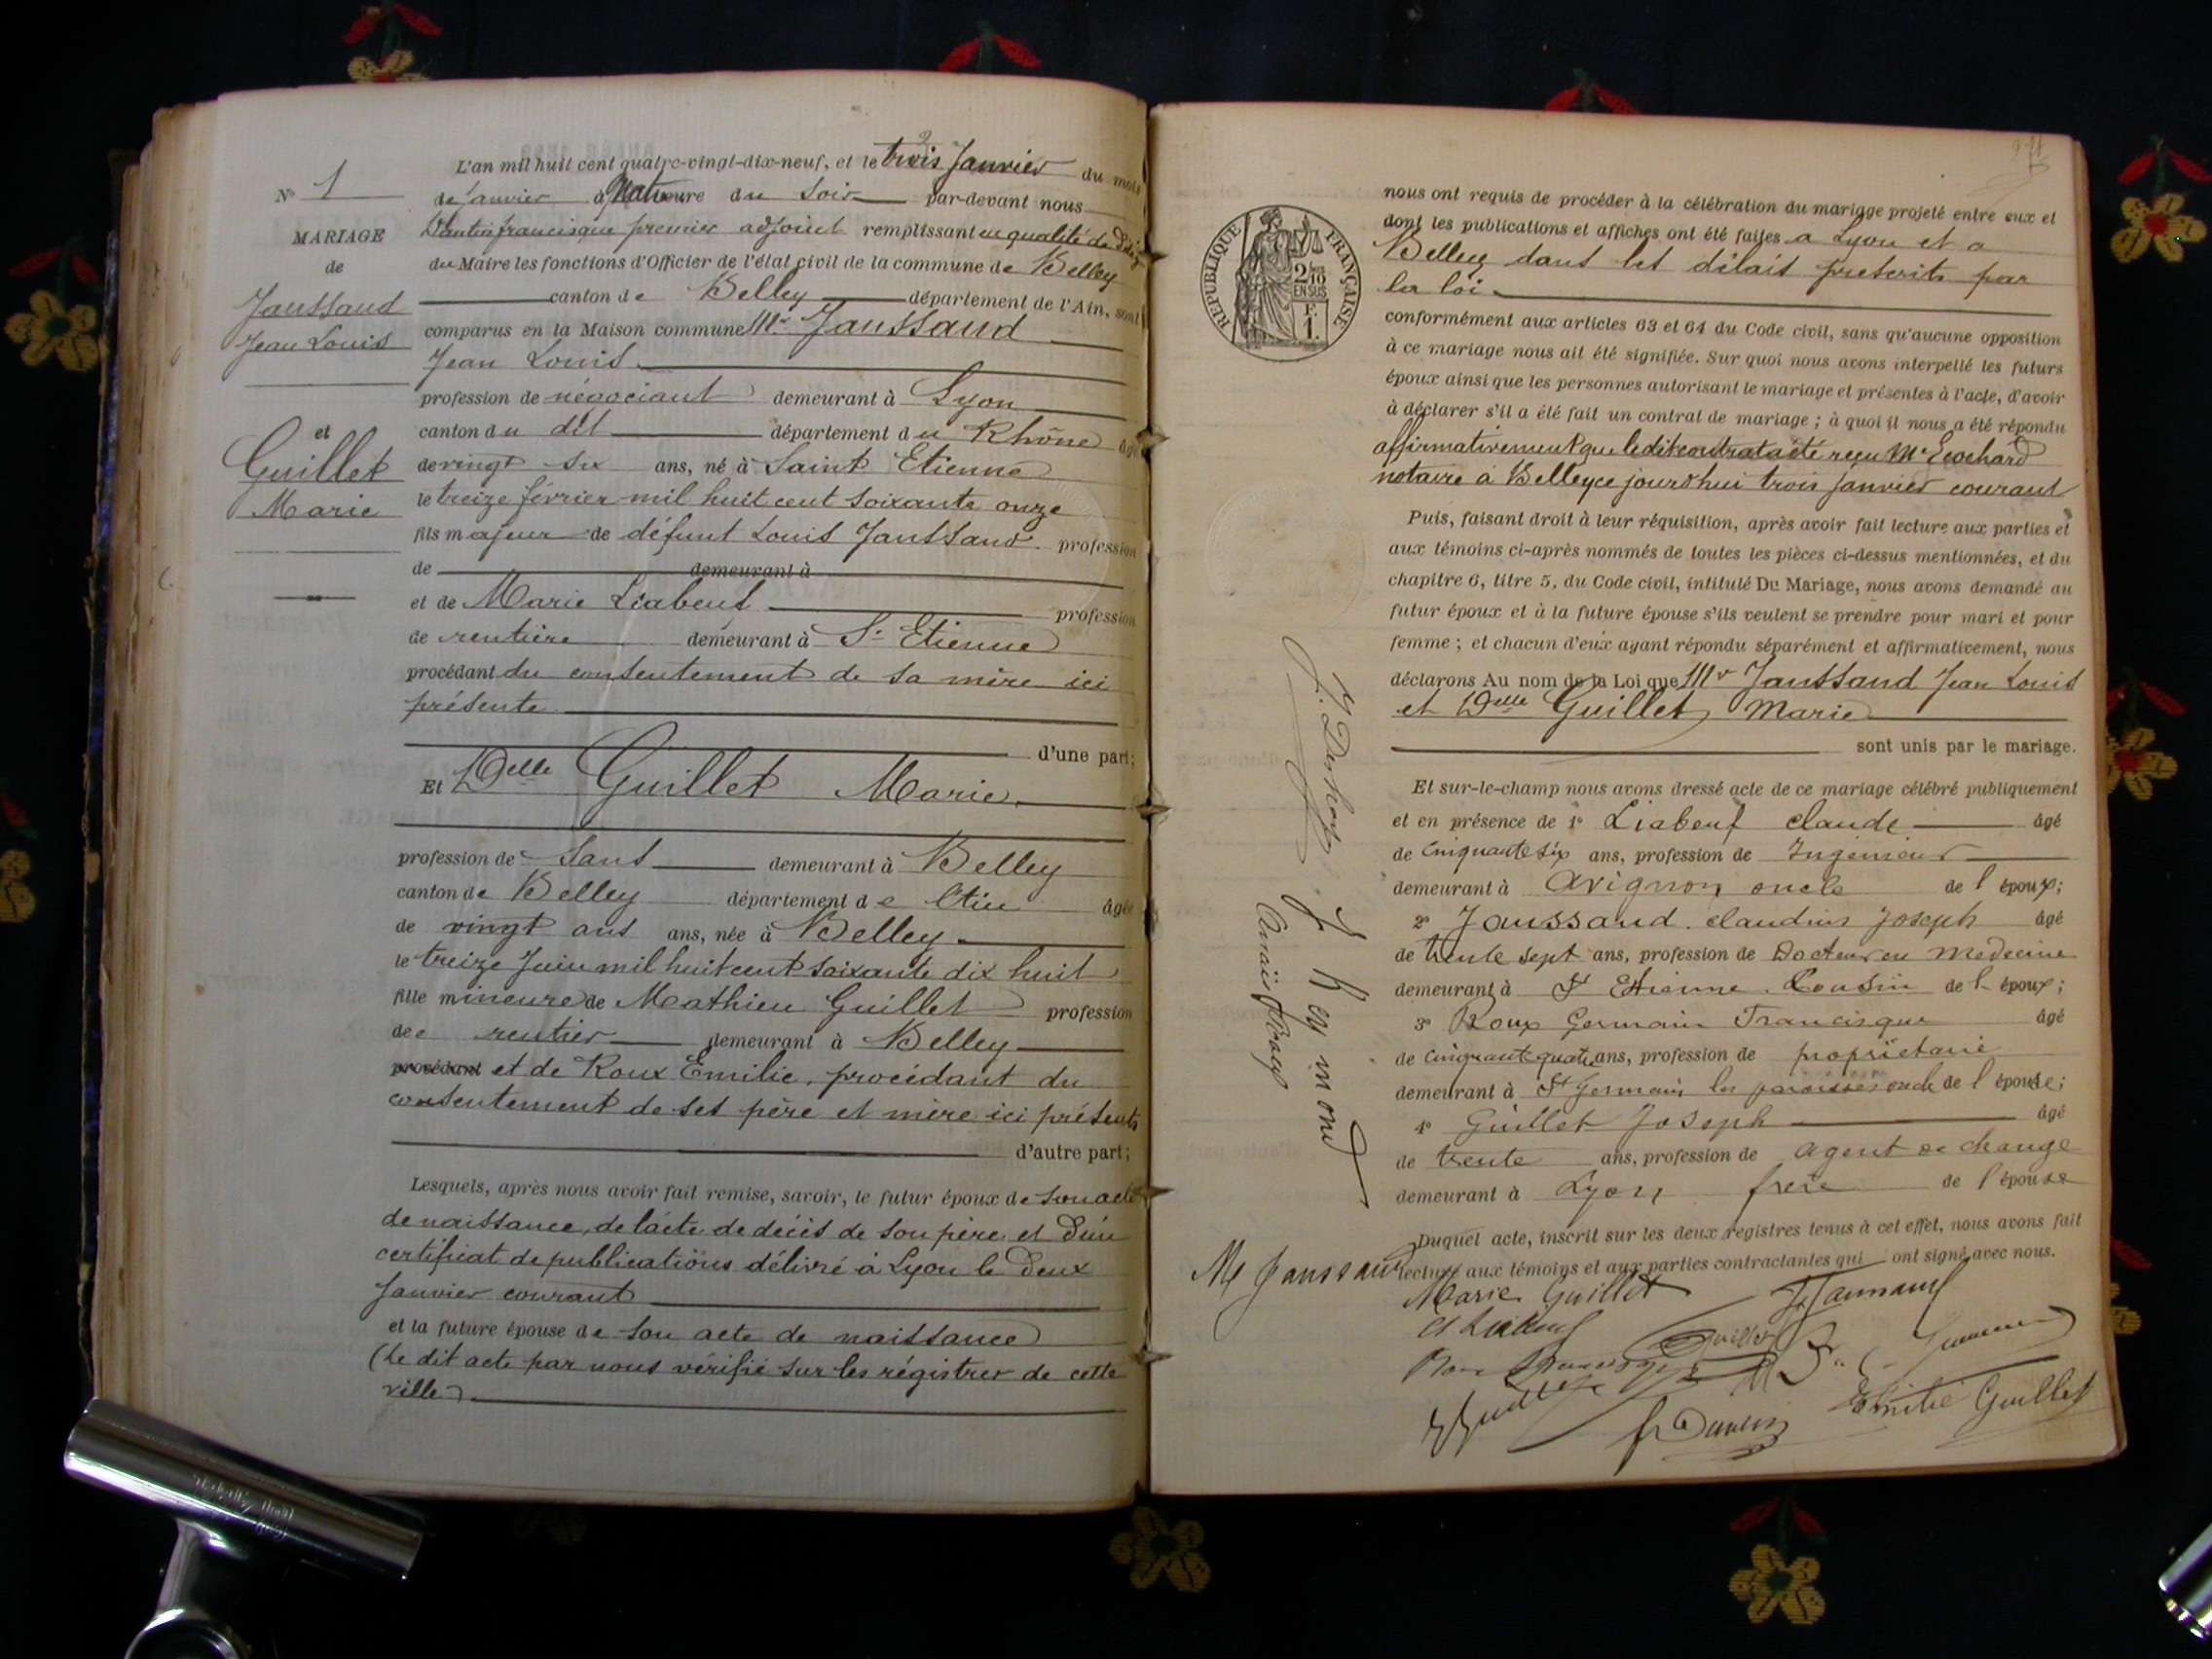 L'an mil huit cent quatre-vingt-dix-neuf, et le trois Janvier du mois
N° 1
de Janvier à heure du Soir par-devant nous
MARIAGE
francisque premier adjoint remplissant en qualité de
de
du Maire les fonctions d'Officier de l'état civil de la commune de Belley
Jaussaud
canton de Belley département de l'Ain, sont
Jean Louis
comparus en la Maison commune Mr Jaussaud
Jean Louis
profession de négociant demeurant à Lyon
et
canton du dit département du Rhône âgé
Guillet
de vingt six ans, né à Saint Etienne
Marie
le treize février mil huit cent soixante onze
fils majeur de défunt Louis Jaussaud profession
de demeurant à
et de Marie Liabeuf profession
de rentière demeurant à St Etienne
procédant du consentement de sa mère ici
présente
d'une part;
Et Delle Guillet Marie
profession de Sans demeurant à Belley
canton de Belley département de l'Ain âgée
de vingt ans ans, née à Belley
le treize Juin mil huit cent soixante dix huit
fille mineure de Mathieu Guillet profession
de rentier demeurant à Belley
procédant et de Roux Emilie, procédant du
consentement de ses père et mère ici présents
d'autre part;
Lesquels, après nous avoir fait remise, savoir, le futur époux de son acte
de naissance, de l'acte de décès de son père et d'un
certificat de publications délivré à Lyon le deux
Janvier courant
et la future épouse de son acte de naissance
(le dit acte par nous vérifié sur les régistres de cette
ville)
nous ont requis de procéder à la célébration du mariage projeté entre eux et
dont les publications et affiches ont été faites a Lyon et a
Belley dans les délais prescrits par
la loi
RÉPUBLIQUE FRANÇAISE
2/10 EN SUS
1 F.
conformément aux articles 63 et 64 du Code civil, sans qu'aucune opposition
à ce mariage nous ait été signifiée. Sur quoi nous avons interpellé les futurs
époux ainsi que les personnes autorisant le mariage et présentes à l'acte, d'avoir
à déclarer s'il a été fait un contrat de mariage ; à quoi il nous a été répondu
affirmativement que le dit contrat a été reçu Me
notaire à Belley ce jourd'hui trois Janvier courant
Puis, faisant droit à leur réquisition, après avoir fait lecture aux parties et
aux témoins ci-après nommés de toutes les pièces ci-dessus mentionnées, et du
chapitre 6, titre 5, du Code civil, intitulé Du Mariage, nous avons demandé au
futur époux et à la future épouse s'ils veulent se prendre pour mari et pour
femme ; et chacun d'eux ayant répondu séparément et affirmativement, nous
déclarons Au nom de la Loi que Mr Jaussaud Jean Louis
et Delle Guillet Marie
sont unis par le mariage.
Et sur-le-champ nous avons dressé acte de ce mariage célébré publiquement
et en présence de 1° Liabeuf claude âgé
de Cinquante six ans, profession de Ingenieur
demeurant à Avignon oncle de l'époux;
2° Jaussaud claudius Joseph âgé
de trente sept ans, profession de Docteur en Medecine
demeurant à St Etienne Cousin de l'époux;
3° Roux Germain Francisque âgé
de Cinquante quatre ans, profession de propriétaire
demeurant à St Germain les paroisses oncle de l'épouse;
4° Guillet Joseph âgé
de trente ans, profession de agent de change
demeurant à Lyon frere de l'épouse
Duquel acte, inscrit sur les deux registres tenus à cet effet, nous avons fait
lecture aux témoins et aux parties contractantes qui ont signé avec nous.
M Jaussaud
Marie Guillet
Guillet
Emilie Guillet
J Reymond